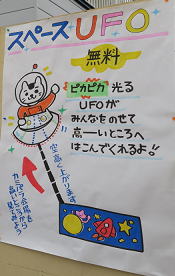 スペースUFO
無料
ピカピカ光る
UFOが
みんなをのせて
高ーいところへ
はこんでくれるよ!!
空高く上がります。
カミハラ会場を
高いところから
見てみよう